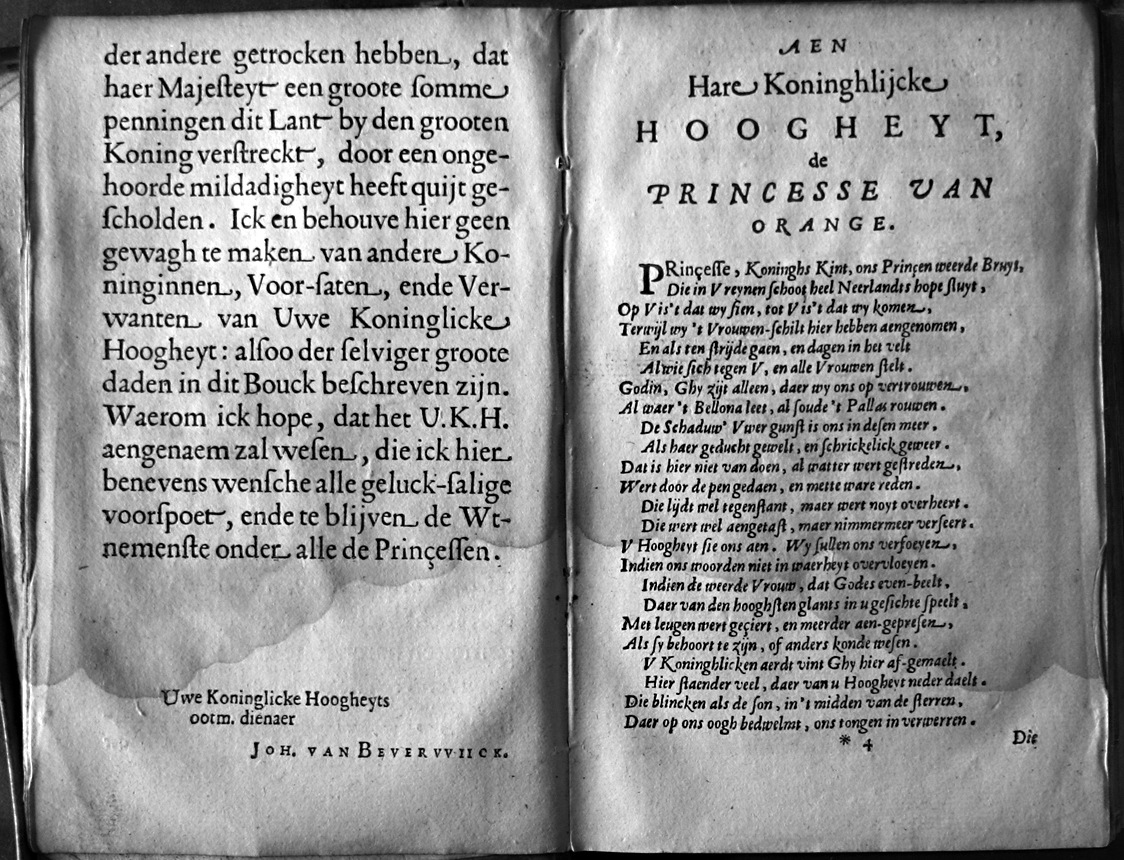 der andere getrocken hebben, dat
haer Majesteyt een groote somme
penningen dit Lant by den grooten
Koning verstreckt, door een onge-
hoorde mildadigheyt heeft quijt ge-
scholden. Ick en behouve hier geen
gewagh te maken van andere Ko-
ninginnen, Voor-saten, ende Ver-
wanten van Uwe Koninglicke
Hoogheyt: alsoo der selviger groote
daden in dit Bouck beschreven zijn.
Waerom ick hope, dat het U.K.H.
aengenaem zal wesen, die ick hier
benevens wensche alle geluck-salige
voorspoet, ende te blijven de Wt-
nemenste onder alle de Prinçessen.
Uwe Koninglicke Hoogheyts
ootm. dienaer
JOH. VAN BEVERVVIICK.
AEN
Hare Koninghlijcke
HOOGHEYT,
de
PRINCESSE VAN
ORANGE.
PRinçesse, Koninghs Kint, ons Prinçen weerde Bruyt,
Die in V reynen schoot heel Neerlandts hope sluyt,
Op V is't dat wy sien, tot V is't dat wy komen,
Terwijl wy 't Vrouwen-schilt hier hebben aengenomen,
En als ten strijde gaen, en dagen in het velt
Al wie sich tegen V, en alle Vrouwen stelt.
Godin, Ghy zijt alleen, daer wy ons op vertrouwen,
Al waer 't Bellona leet, al soude 't Pallas rouwen.
De Schaduw' Vwer gunst is ons in desen meer,
Als haer geducht gewelt, en schrickelick geweer.
Dat is hier niet van doen, al watter wert gestreden,
Wert door de pen gedaen, en mette ware reden.
Die lijdt wel tegenstant, maer wert noyt overheert.
Die wert wel aengetast, maer nimmermeer verseert.
V Hoogheyt sie ons aen. Wy sullen ons verfoeyen,
Indien ons woorden niet in waerheyt overvloeyen.
Indien de weerde Vrouw, dat Godes even-beelt,
Daer van den hooghsten glants in u gesichte speelt,
Met leugen wert geçiert, en meerder aen-gepresen,
Als sy behoort te zijn, of anders konde wesen.
V Koninghlicken aerdt vint Ghy hier af-gemaelt.
Hier staender veel, daer van u Hoogheyt neder daelt.
Die blincken als de son, in 't midden van de sterren,
Daer op ons oogh bedwelmt, ons tongen in verwerren.
* 4
Die